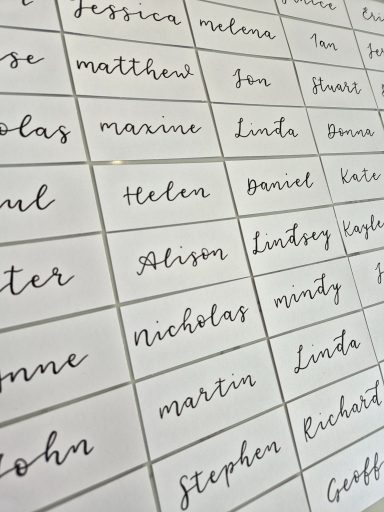 Jessica melena Ian
se matthew Jon Stuart
olas maxine Linda Donna
ul Helen Daniel Kate
ter Alison Lindsey Kayle
nne nicholas mindy
John martin Linda
Stephen Richard
Geoff